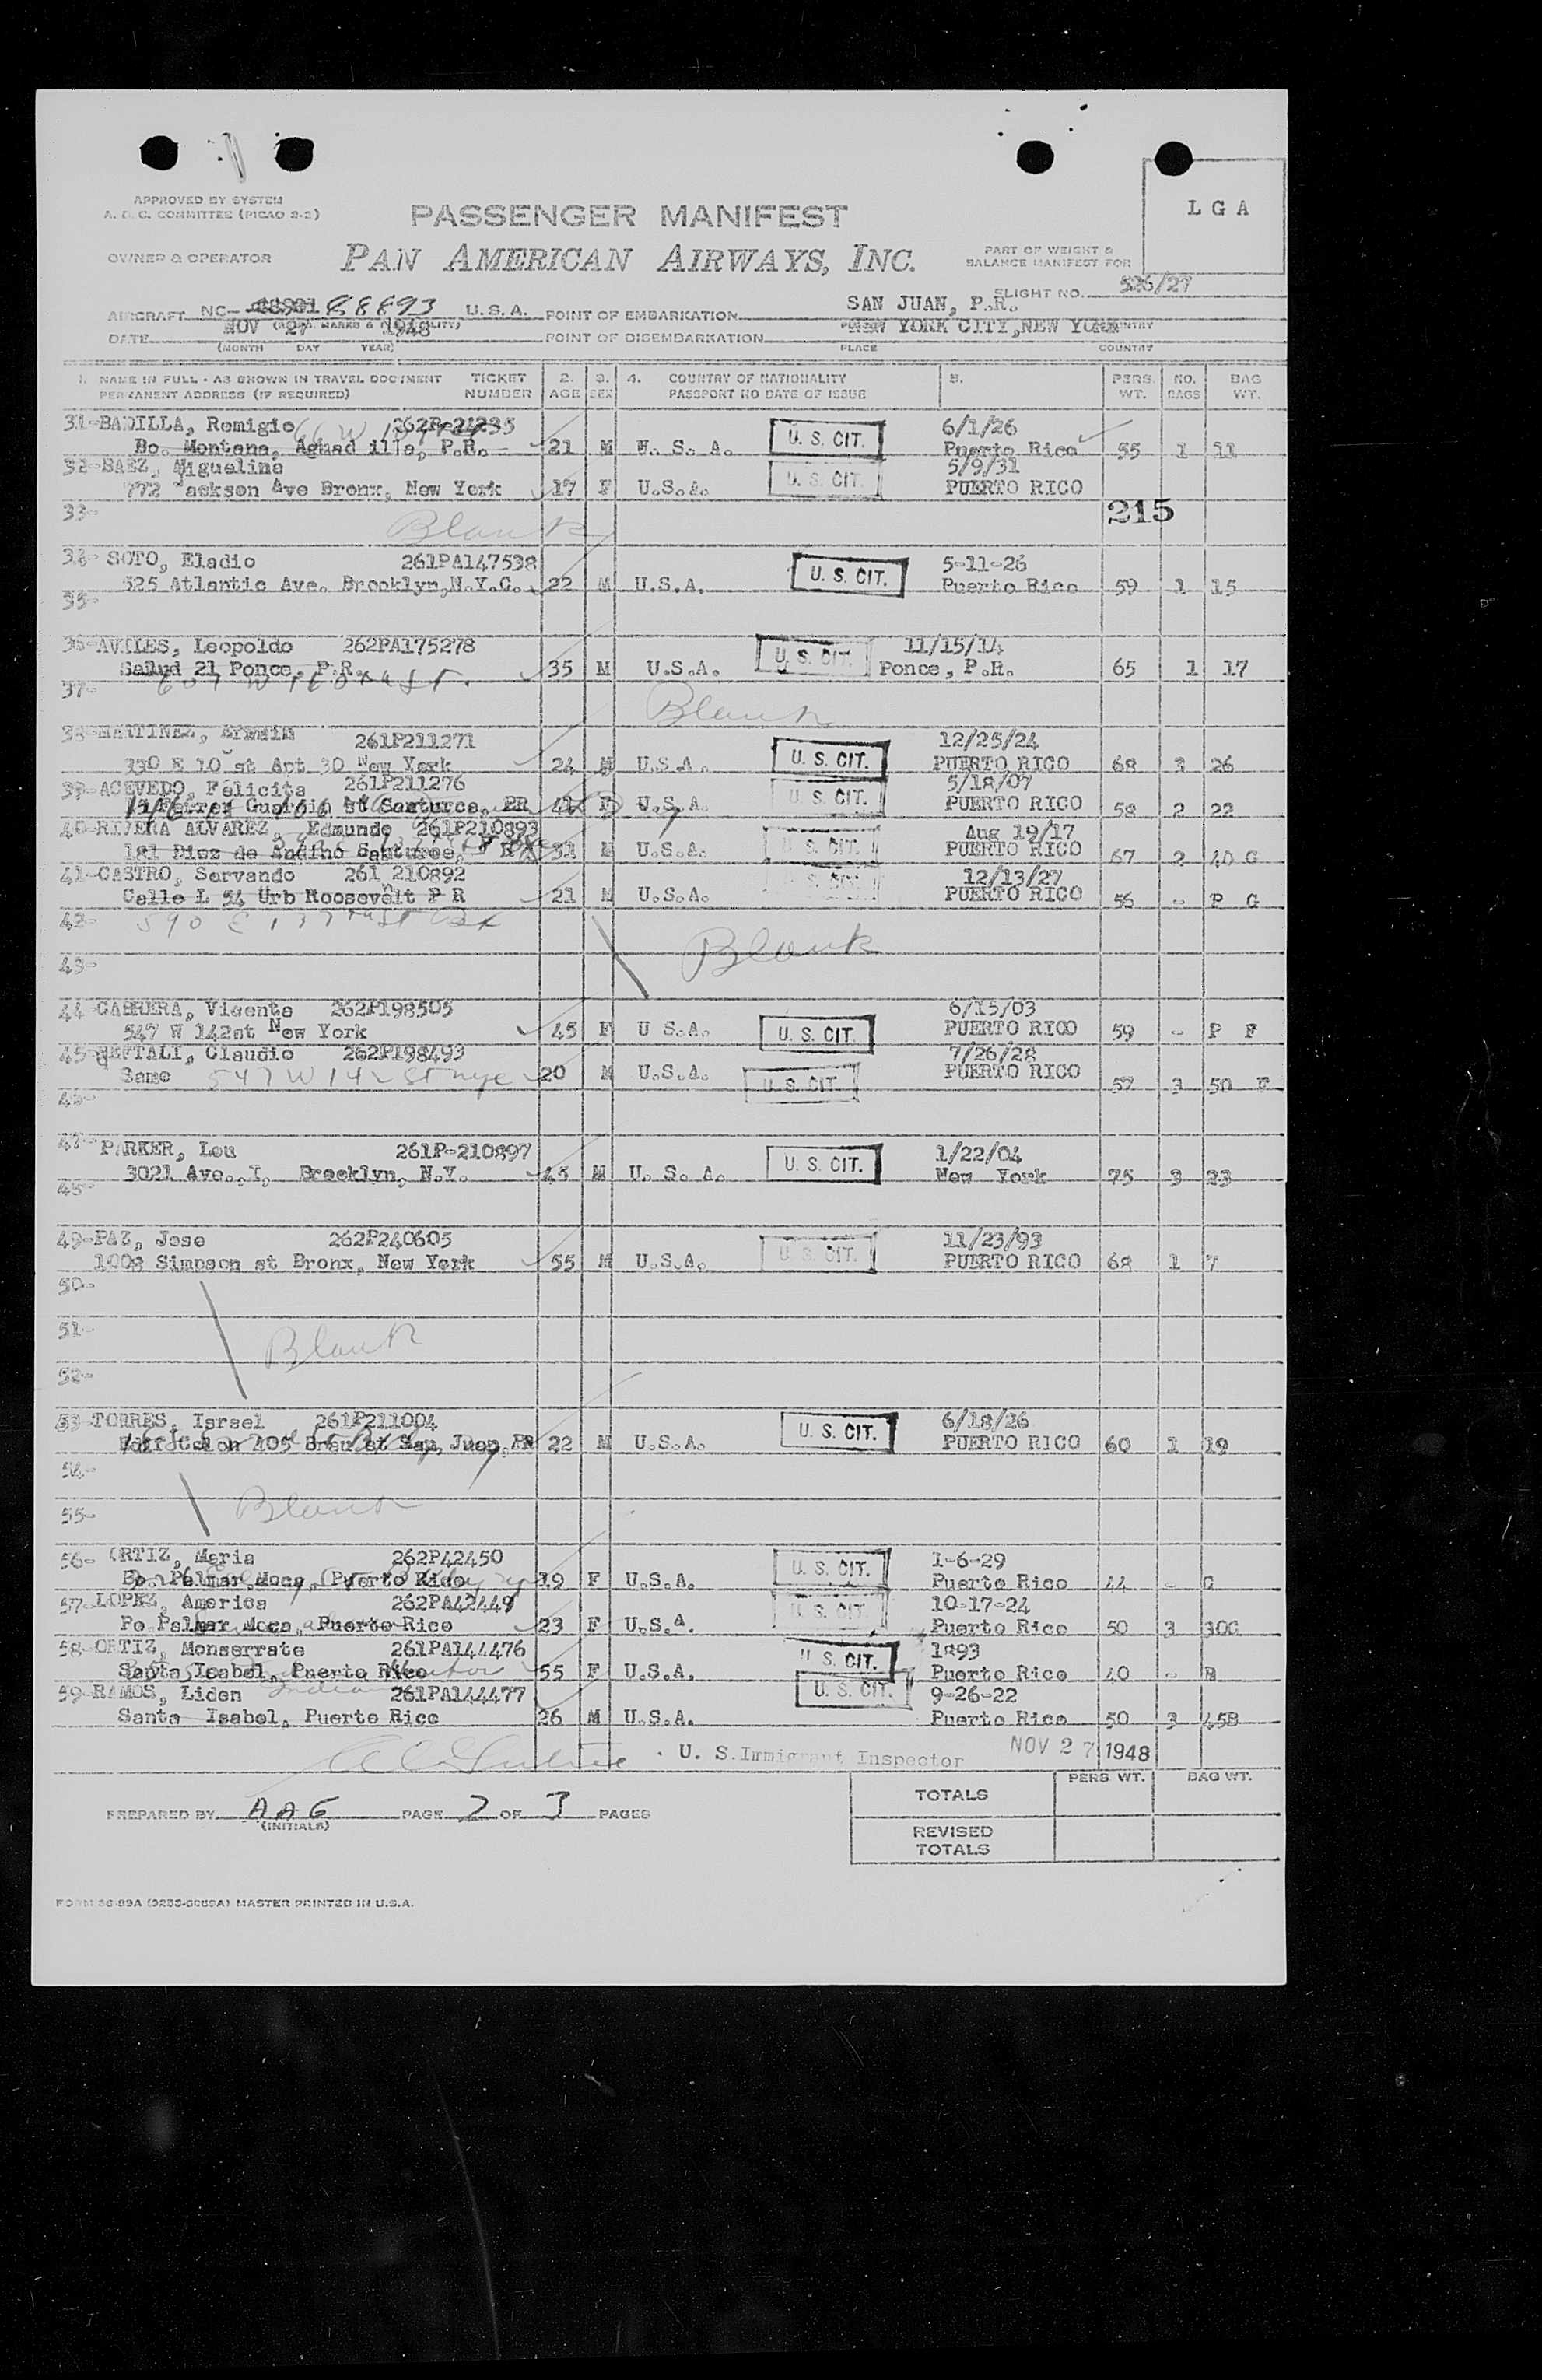 APPROVED BY SYSTEM
A. T. C. COMMITTEE (PICAO 2-2)
PASSENGER MANIFEST
L G A
OWNER & OPERATOR
PAN AMERICAN AIRWAYS, INC.
PART OF WEIGHT &
BALANCE MANIFEST FOR
FLIGHT NO. 526/27
AIRCRAFT NC- 88893 U.S.A. POINT OF EMBARKATION SAN JUAN, P.R.
DATE NOV 27 1948 POINT OF DISEMBARKATION NEW YORK CITY,NEW YORK
(MONTH DAY YEAR) PLACE COUNTRY
1. NAME IN FULL - AS SHOWN IN TRAVEL DOCUMENT TICKET 2. 3. 4. COUNTRY OF NATIONALITY 5. PERS. NO. BAG
PERMANENT ADDRESS (IF REQUIRED) NUMBER AGE SEX PASSPORT NO DATE OF ISSUE WT. BAGS WT.
31-BADILLA, Remigio 262P-21235 U. S. CIT. 6/1/26
Bo. Montana, Aguadilla, P.R. 21 M U. S. A. Puerto Rico 55 1 11
32-BAEZ, Miguelina U. S. CIT. 5/9/31
772 Jackson Ave Bronx, New York 17 F U.S.A. PUERTO RICO
33- Blank 215
34- SOTO, Eladio 261PA147538 U. S. CIT. 5-11-26
525 Atlantic Ave. Brooklyn,N.Y.C. 22 M U.S.A. Puerto Rico 59 1 15
35-
36-AVILES, Leopoldo 262PA175278 U. S. CIT. 11/15/14
Salud 21 Ponce, P.R. 35 M U.S.A. Ponce, P.R. 65 1 17
37- Blank
38-MARTINEZ, 261P211271 U. S. CIT. 12/25/24
330 E 10 st Apt 30 New York 24 M U.S.A. PUERTO RICO 68 3 26
39-ACEVEDO, Felicita 261P211276 U. S. CIT. 5/18/07
st Santurce, PR F U.S.A. PUERTO RICO 58 2 22
40-RIVERA ALVAREZ, Edmundo 261P210893 U. S. CIT. Aug 19/17
181 Diez de Andino Santurce, 31 M U.S.A. PUERTO RICO 67 2 40 G
41-CASTRO, Servando 261 210892 U. S. CIT. 12/13/27
Calle L 54 Urb Roosevelt P R 21 M U.S.A. PUERTO RICO 56 - P G
42- 590 E 137
Blank
43-
44-CABRERA, Vicenta 262P198505 6/15/03
547 W 142st New York 45 F U S.A. U. S. CIT. PUERTO RICO 59 - P F
45-NEFTALI, Claudio 262P198493 7/26/28
Same 547 W 142 St nyc 20 M U.S.A. U. S. CIT. PUERTO RICO 57 3 50 F
46-
47- PARKER, Lou 261P-210897 U. S. CIT. 1/22/04
3021 Ave., I, Brooklyn, N.Y. M U. S. A. New York 75 3 23
48-
49-PAZ, Jose 262P240605 U. S. CIT. 11/23/93
1008 Simpson st Bronx, New York 55 M U.S.A. PUERTO RICO 68 1 7
50-
51- Blank
52-
53-TORRES, Israel 261P211004 U. S. CIT. 6/18/26
405 st San Juan, PR 22 M U.S.A. PUERTO RICO 60 1 19
54-
Blank
55-
56- ORTIZ, Maria 262P42450 U. S. CIT. 1-6-29
Bo. Palmar Moca, Puerto Rico 19 F U.S.A. Puerto Rico 44 - C
57-LOPEZ, America 262PA42449 U. S. CIT. 10-17-24
Bo Palmar Moca, Puerto Rico 23 F U.S.A. Puerto Rico 50 3 30C
58-ORTIZ, Monserrate 261PA144476 U. S. CIT. 1893
Santa Isabel, Puerto Rico 55 F U.S.A. Puerto Rico 40 - B
59-RAMOS, Liden 261PA144477 U. S. CIT. 9-26-22
Santa Isabel, Puerto Rico 26 M U.S.A. Puerto Rico 50 3 45B
U. S. Immigrant Inspector NOV 27 1948
PERS. WT. BAG WT.
TOTALS
PREPARED BY AAG PAGE 2 OF 3 PAGES
(INITIALS)
REVISED
TOTALS
MASTER PRINTED IN U.S.A.